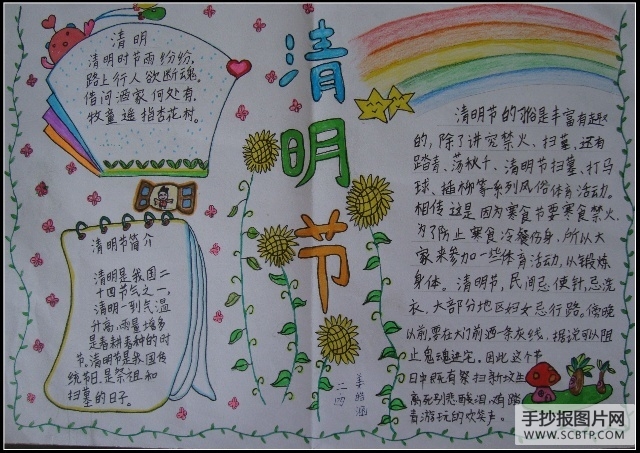 清明
清明时节雨纷纷,
路上行人欲断魂。
借问酒家何处有,
牧童遥指杏花村。
清明节
清明节简介
清明是我国二
十四节气之一,
清明一到气温
升高,雨量增多
是春耕春种的时
节。清明节是我国传
统节日,是祭祖和
扫墓的日子。
清明节的俗是丰富有趣
的,除了讲究禁火、扫墓,还有
踏青、荡秋千、清明节扫墓、打马
球、插柳等系列风俗体育活动。
相传这是因为寒食节要寒食禁火,
为了防止寒食冷餐伤身,所以大
家来参加一些体育活动,以锻炼
身体。清明节,民间忌使针,忌洗
衣,大部分地区妇女忌行路。傍晚
以前,要在大门前洒一条灰线,据说可以阻
止鬼魂进宅。因此这个节
日中既有祭扫新坟生
离死别悲酸泪,又有踏
青游玩的欢笑声。
二四
手抄报图片网
WWW.SCBTP.COM